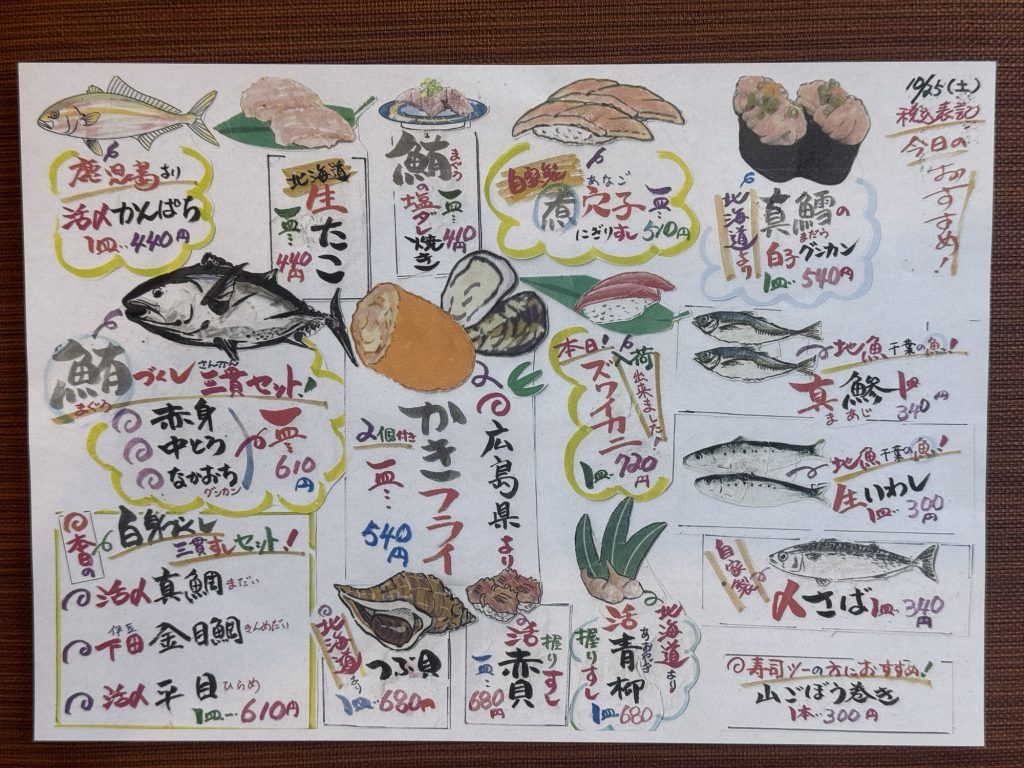 10/25(土)
税込表記
今日の
おすすめ!
鹿児島より
活〆かんぱち
1皿…440円
北海道
生たこ
一皿…440円
鮪の塩ダレ焼き
まぐろ
一皿…410円
自家製
煮穴子
あなご
にぎりすし
一皿…510円
北海道より
真鱈の
まだら
白子グンカン
1皿…540円
鮪づくし
まぐろ
さんかん
三貫セット!
赤身
中とろ
なかおち
グンカン
一皿…610円
広島県より
かきフライ
2個付き
一皿…540円
本日!
入荷出来ました!
ズワイガニ
1皿…720円
地魚千葉の魚!
真鯵
まあじ
1皿340円
地魚千葉の魚!
生いわし
1皿…300円
自家製
〆さば1皿…340円
本日の
白身づくし
三貫すしセット!
活〆真鯛まだい
伊豆
下田金目鯛きんめだい
活〆平目ひらめ
1皿…610円
北海道より
つぶ貝
1皿…680円
活赤貝
握りすし
一皿…680円
北海道より
活青柳
あおやぎ
握りすし
1皿…680
寿司ツーの方におすすめ!
山ごぼう巻き
1本…300円